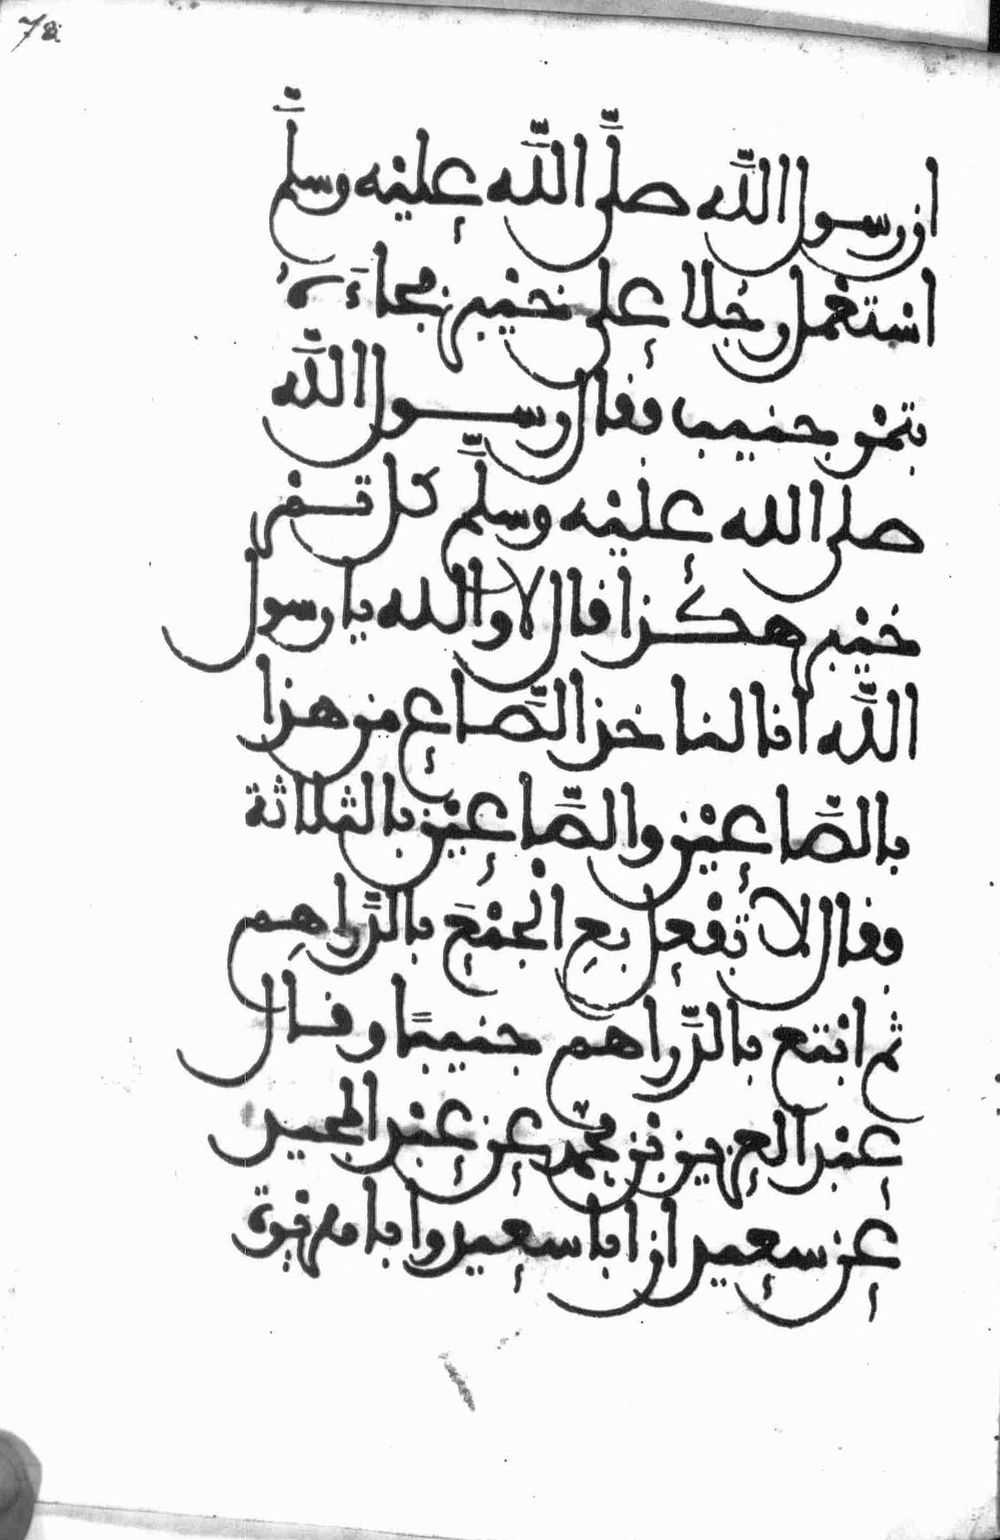 78
ان رسول اللّه صلَّى اللّٰه عليْه وسلَّم
اسْتعْمل رجُلا على خيْبر فجاءَهُ
بتمْر جنيب فقال رسول اللّٰه
صلى الله عليْه وسلَّم كل تمْر
خيْبر هكذا قال لا والله يا رسول
اللّٰه انا لناخذ الصَّاع من هذا
بالصَّاعيْن والصَّاعيْن بالثلاثة
فقال لا تفْعل بع الجمْعَ بالدَّراهِم
ثم ابْتع بالدَّراهم جنيبًا وقال
عبْد العزيز بْن محمّد عن عبْد المجيد
عن سعيد ان ابا سعيد وابا هريْرة